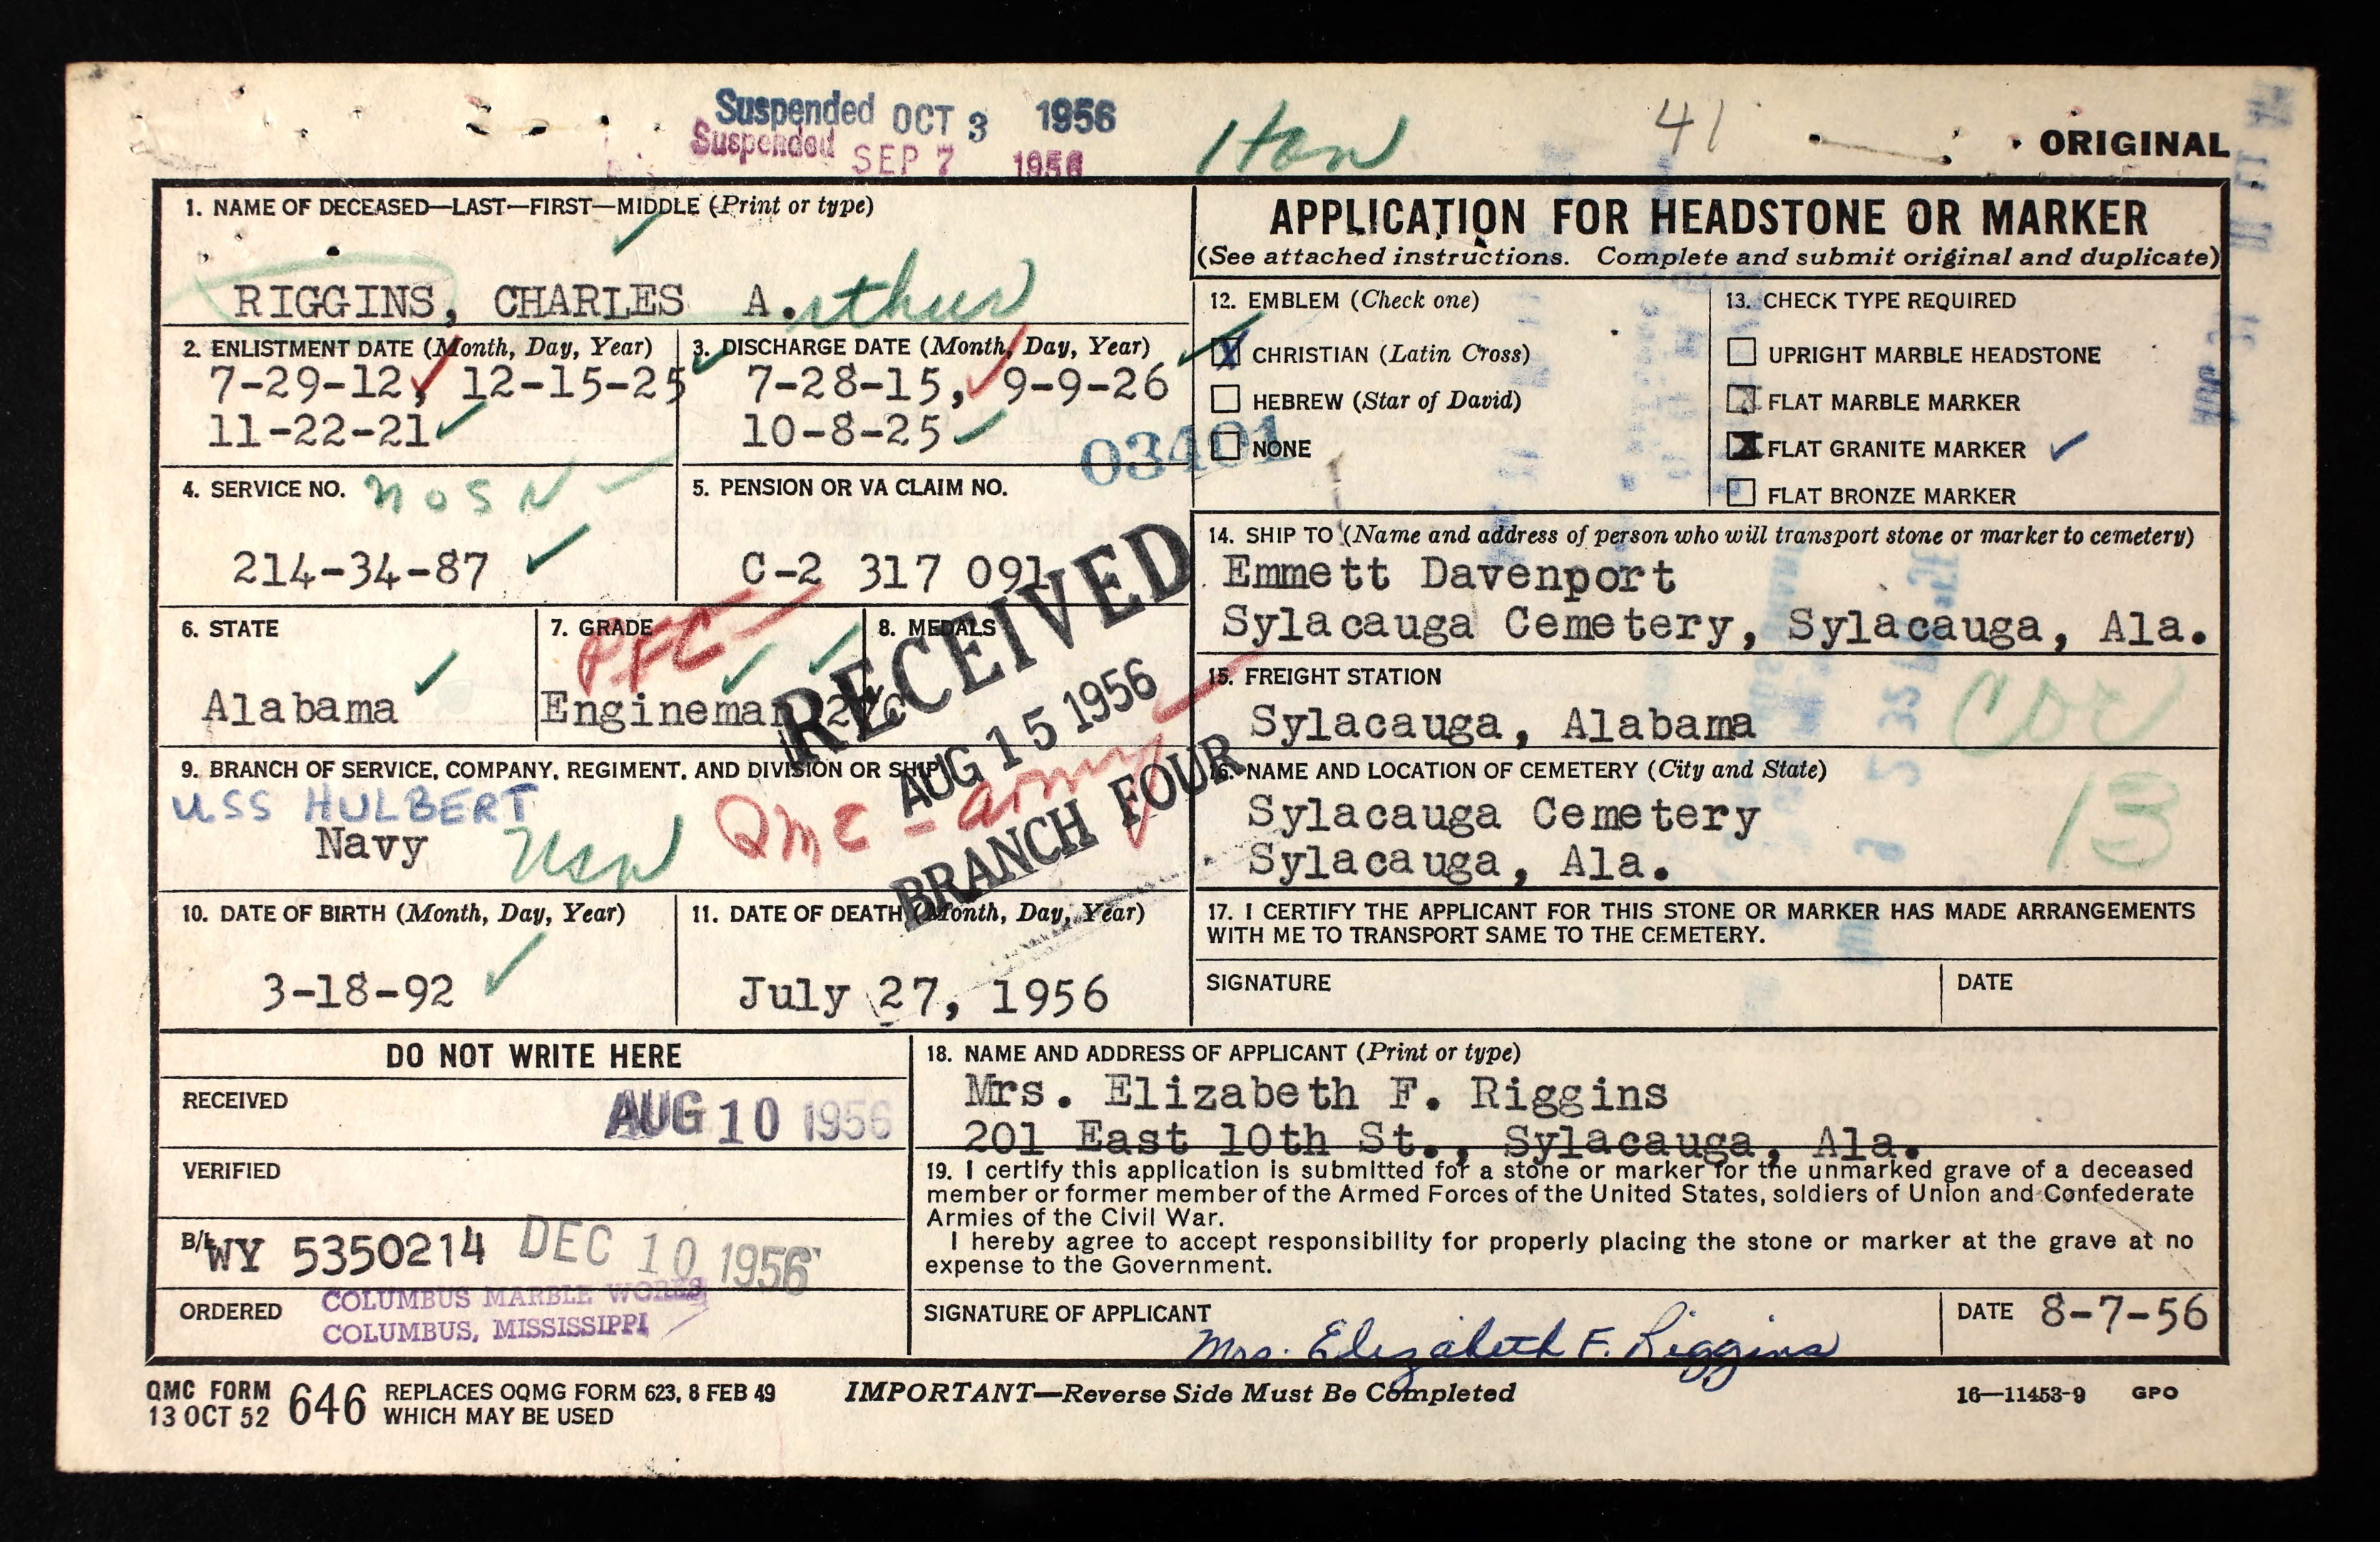 Suspended OCT 3 1956
Suspended SEP 7 1956
41
ORIGINAL
1. NAME OF DECEASED—LAST—FIRST—MIDDLE (Print or type)
RIGGINS, CHARLES A.rthur
APPLICATION FOR HEADSTONE OR MARKER
(See attached instructions. Complete and submit original and duplicate)
2. ENLISTMENT DATE (Month, Day, Year)
7-29-12, 12-15-25
11-22-21
3. DISCHARGE DATE (Month, Day, Year)
7-28-15, 9-9-26
10-8-25
03401
12. EMBLEM (Check one)
X CHRISTIAN (Latin Cross)
HEBREW (Star of David)
NONE
13. CHECK TYPE REQUIRED
UPRIGHT MARBLE HEADSTONE
FLAT MARBLE MARKER
X FLAT GRANITE MARKER
FLAT BRONZE MARKER
4. SERVICE NO. NOSN
214-34-87
5. PENSION OR VA CLAIM NO.
C-2 317 091
14. SHIP TO (Name and address of person who will transport stone or marker to cemetery)
Emmett Davenport
Sylacauga Cemetery, Sylacauga, Ala.
6. STATE
Alabama
7. GRADE
PFC
Engineman 2/c
8. MEDALS
RECEIVED
AUG 15 1956
BRANCH FOUR
15. FREIGHT STATION
Sylacauga, Alabama
COR
13
9. BRANCH OF SERVICE, COMPANY, REGIMENT, AND DIVISION OR SHIP
USS HULBERT
Navy USN
QMC - army
16. NAME AND LOCATION OF CEMETERY (City and State)
Sylacauga Cemetery
Sylacauga, Ala.
10. DATE OF BIRTH (Month, Day, Year)
3-18-92
11. DATE OF DEATH (Month, Day, Year)
July 27, 1956
17. I CERTIFY THE APPLICANT FOR THIS STONE OR MARKER HAS MADE ARRANGEMENTS
WITH ME TO TRANSPORT SAME TO THE CEMETERY.
SIGNATURE
DATE
DO NOT WRITE HERE
RECEIVED AUG 10 1956
VERIFIED
B/L WY 5350214 DEC 10 1956
ORDERED COLUMBUS MARBLE WORKS
COLUMBUS, MISSISSIPPI
18. NAME AND ADDRESS OF APPLICANT (Print or type)
Mrs. Elizabeth F. Riggins
201 East 10th St., Sylacauga, Ala.
19. I certify this application is submitted for a stone or marker for the unmarked grave of a deceased
member or former member of the Armed Forces of the United States, soldiers of Union and Confederate
Armies of the Civil War.
I hereby agree to accept responsibility for properly placing the stone or marker at the grave at no
expense to the Government.
SIGNATURE OF APPLICANT
Mrs. Elizabeth F. Riggins
DATE 8-7-56
QMC FORM
13 OCT 52 646 REPLACES OQMG FORM 623, 8 FEB 49
WHICH MAY BE USED
IMPORTANT—Reverse Side Must Be Completed
16—11453-9 GPO